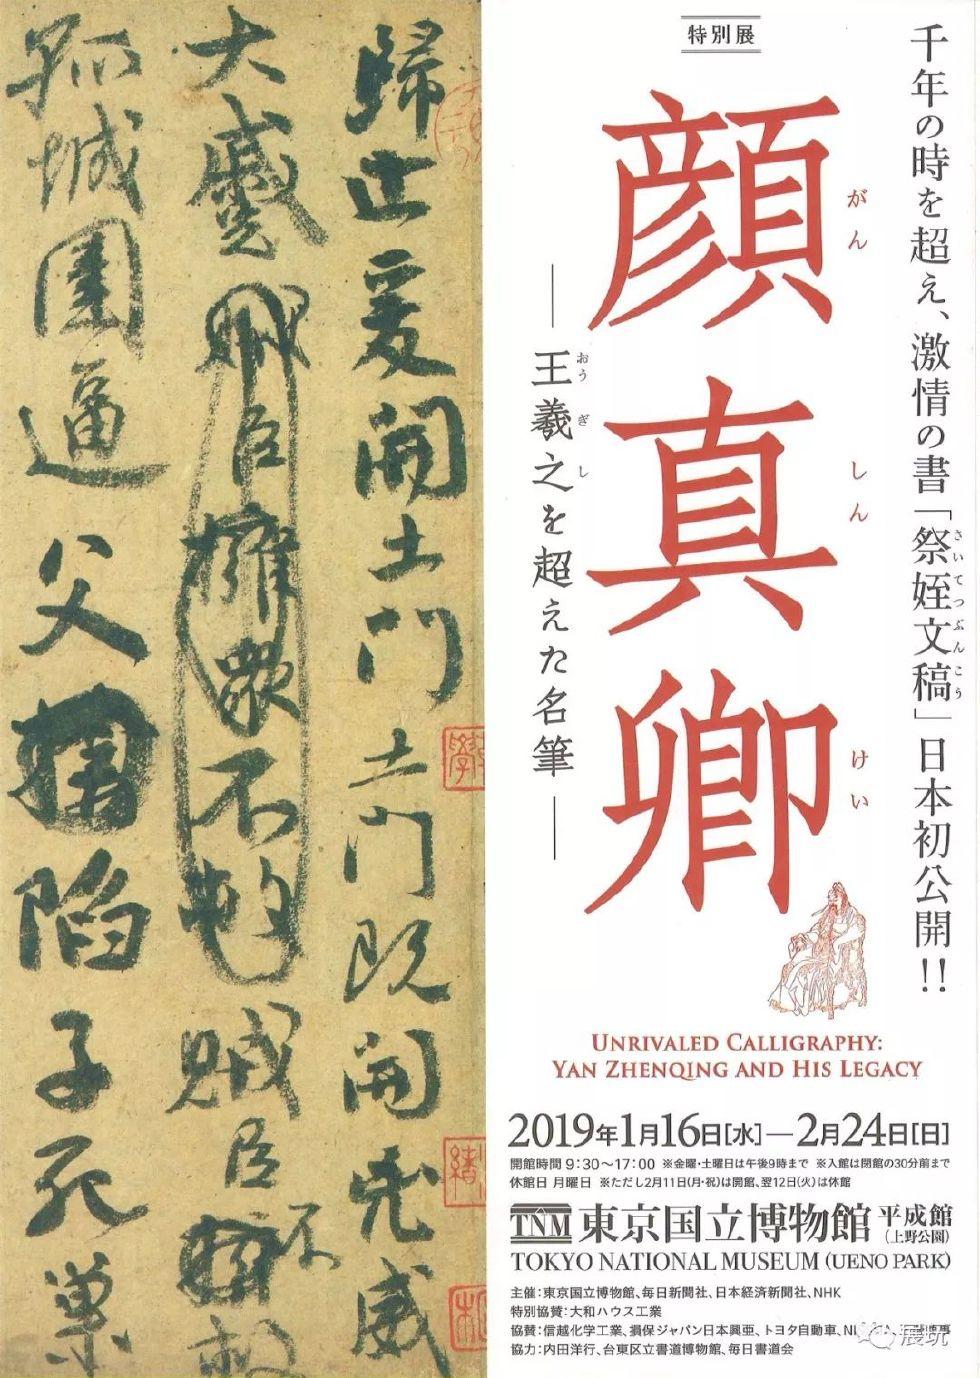 特別展
千年の時を超え、激情の書「祭姪文稿」日本初公開!!
さいてつぶんこう
顔真卿
がん しん けい
王羲之を超えた名筆
おう ぎ し
UNRIVALED CALLIGRAPHY:
YAN ZHENQING AND HIS LEGACY
2019年1月16日[水]—2月24日[日]
開館時間 9:30～17:00 ※金曜・土曜日は午後9時まで ※入館は閉館の30分前まで
休館日 月曜日 ※ただし2月11日(月・祝)は開館、翌12日(火)は休館
TNM 東京国立博物館 平成館
(上野公園)
TOKYO NATIONAL MUSEUM (UENO PARK)
主催:東京国立博物館、毎日新聞社、日本経済新聞社、NHK
特別協賛:大和ハウス工業
協賛:信越化学工業、損保ジャパン日本興亜、トヨタ自動車、
協力:内田洋行、台東区立書道博物館、毎日書道会
展玩
歸止爰開土門土門既開兇威
大蹙
賊臣不
孤城圍逼父陷子死巢